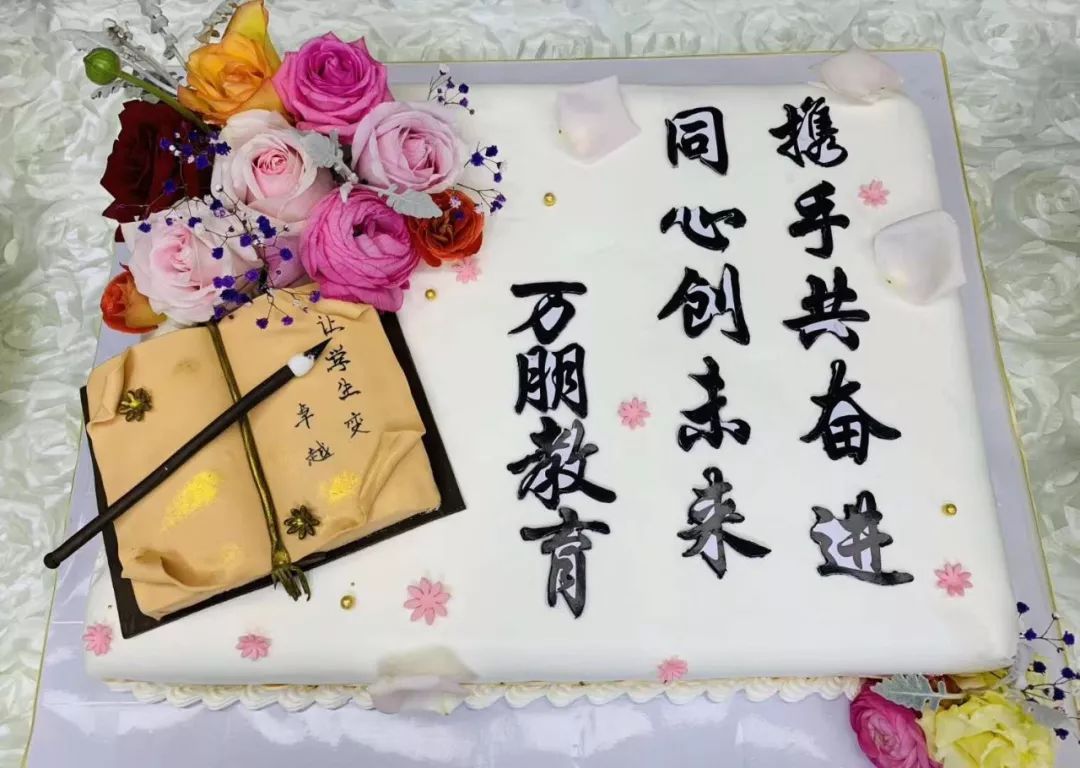 携手共奋进
同心创未来
万朋教育
让学生变
卓越